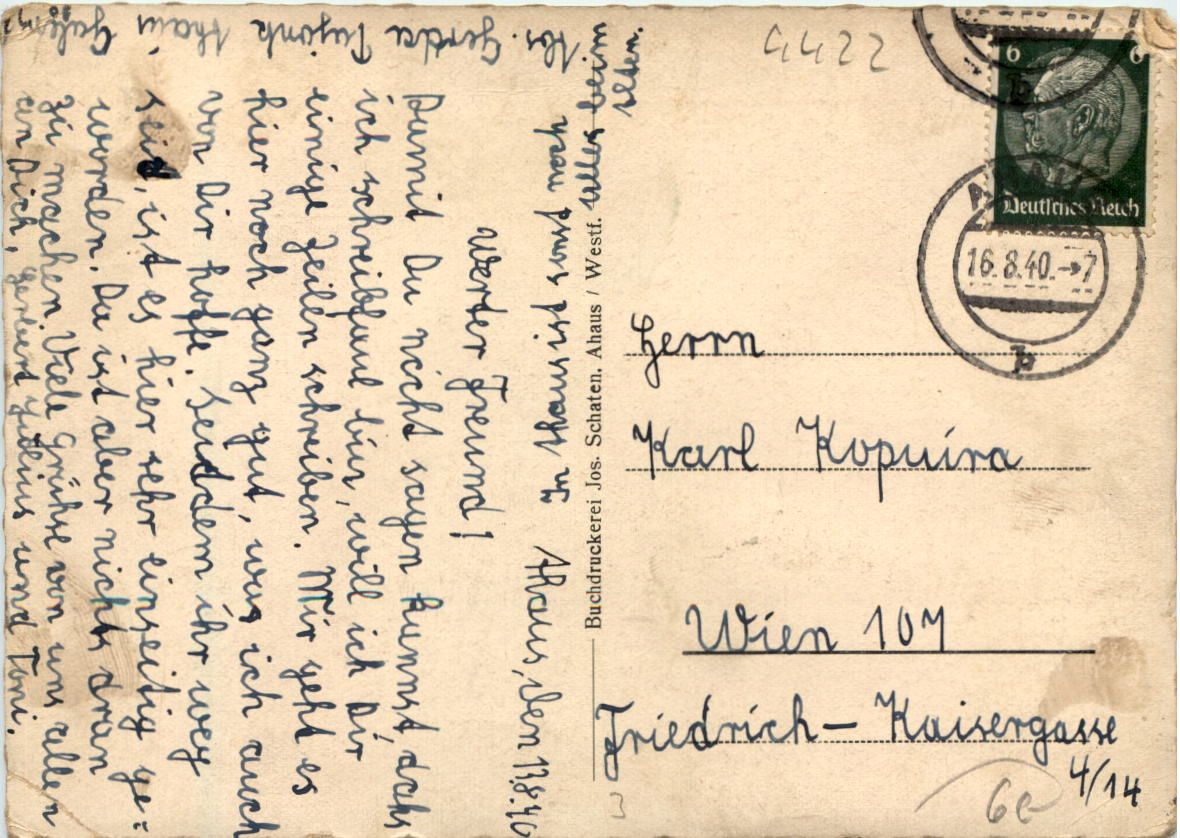 Ahaus, den 13.8.40
Werter Freund!
Damit Du nicht sagen kannst dahs
ich schreibfaul bin, will ich Dir
einige Zeilen schreiben. Mir geht es
hier noch ganz gut, was ich auch
von Dir hoffe. Seitdem ihr weg
seid, ist es hier sehr einseitig ge=
worden. Da ist aber nichts dran
zu machen. Viele Grühse von uns allen
an Dich, Julius und Toni.
In Ahaus ist sonst noch
alles beim
alten.
Abs. Ahaus
Buchdruckerei Jos. Schaten, Ahaus / Westf.
4422
6 6
Deutsches Reich
16.8.40.-7
b
Herrn
Karl Kopuira
Wien 107
Friedrich – Kaisergasse
4/14
6e
3